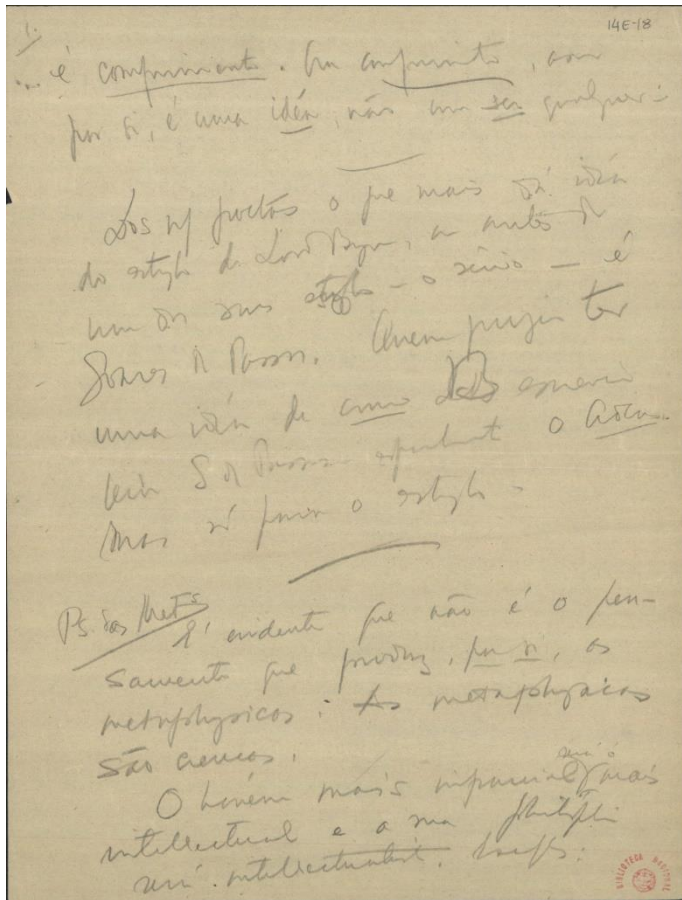 14E-18
1.
... é comprimento. Um comprimento, com
por si, é uma idéa, não um ser qualquer:
Dos nossos poetas o que mais dá idéa
do estylo de Lord Byron, ou antes de
um dos seus estylos — o sério — é
Soares de Passos. Quem quizer ter
uma idéa de como escrevia
leia S. de Passos
mas só para o estylo.
Ps. das Mets
É evidente que não é o pen-
samento que produz, por si, as
metaphysicas: As metaphysicas
são crenças.
O homem mais imparcial será o mais
intellectual e a sua philosophia
será intellectualista.
BIBLIOTECA NACIONAL